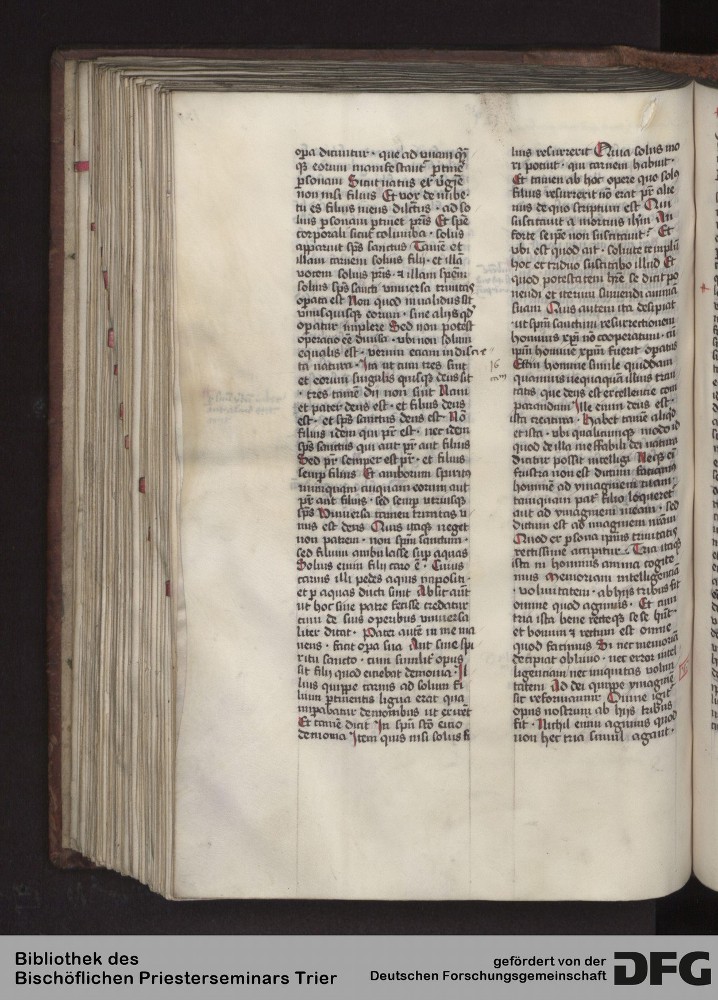 opera dicuntur · que ad unam q̄ꝫ
qꝫ eorum manifestand̄ ꝑtine͞t
ꝑsonam Sicut natus ex v͞gīe
non nisi filius Et vox de nube ·
tu es filius meus dilc̄tus · ad so
lius ꝑsonam ꝑtinet pr̄is Et spē
corporali sicut columba · solus
apparuit sp̄s sanctus Tamē et
illam carnem solius filij · et illā
vocem solius pr̄is · ⁊ illam spēm
solius sp̄s sancti vniuersa trinitas
operata est Non quod inualidus sit
vnusquisqꝫ eorum · sine alijs qd̄
operatur implere Sed non potest
operacio eē diuisa · vbi non solum
equalis est · verum eciam indiscre
ta natura · Ita ut cum tres sint
et eorum singulis quisqꝫ deus sit
· tres tamē dij non sint Nam
et pater deus est · et filius deus
est · et sp̄s sanctus deus est Nō
filius idem qui pr̄ est · nec idem
sp̄s sanctus qui aut pr̄ aut filius
Sed pr̄ semper est pr̄ · et filius
semꝑ filius Et amborum spiritus
nunquam cuiquam eorum aut
pr̄ aut filius · sed semꝑ utriusqꝫ
sp̄s Vniuersa tamen trinitas v
nus est deus Quis itaqꝫ neget
non patrem · non sp̄m sanctum ·
sed filium ambulasse suꝑ aquas
Solius enim filij caro ē · Cuius
carnis illi pedes aquis inpositi ·
et ꝑ aquas ducti sunt Absit aūt
ut hoc sine patre fecisse credatur
cum de suis operibus vniuersa
liter dicat · Pater autē in me ma
nens · facit opera sua Aut sine spi
ritu sancto · cum similit͛ opus
sit filij quod eiciebat demonia · Il
lius quippe carnis ad solum fi
lium ꝑtinentis ligua erat qua
imꝑabatur demonibus ut exirēt
Et tamē dicit In sp̄u scō eicio
demonia Item quis nisi solus fi
16
lius resurrexit Quia solus mo
ri potuit · qui carnem habuit ·
Et tamen ab hoc opere quo solꝰ
filius resurrexit nō erat pr̄ alie
nus de quo scriptum est Qui
suscitauit a mortuis ih̄m An
forte seip̄e non suscitauit? Et
vbi est quod ait · soluite templū
hoc et triduo suscitabo illud Et
quod potestatem hr̄e se dicit po
nendi et iterum sumendi animā
suam Quis autem ita desipiat
· ut sp̄m sanctum resurrectionem
hominis xp̄i nō cooperatum · cū
ip̄m hominē xp̄m fuerit operatus
Est in homine simile quiddam
quamuis nequaquam illius trini
tatis que deus est excellencie com
parandum Ille enim deus est ·
ista creatura · Habet tamē aliqd̄
et ista · vbi qualicumqꝫ modo id
quod de illa ineffabili dei natura
dicitur possit intelligi Neqꝫ eī
frustra non est dictum faciamꝰ
hominē ad ymaginem tuam ·
tamquam pat͛ filio loqueret͛
aut ad ymaginem meam · sed
dictum est ad ymaginem nr̄am
Quod ex ꝑsona ip̄ius trinitatis
rectissime accipitur · Tria itaqꝫ
ista in hominis anima cogite
mus Memoriam intelligenciā
· voluntatem · ab hijs tribus fit
omne quod agimus · Et cum
tria ista bene recteqꝫ se se hn̄t ·
et bonum ⁊ rectum est omne
quod facimus Si nec memoriā
decipiat obliuio · nec error intel
ligenciam nec iniquitas volun
tatem Ad dei quippe ymaginē
sit reformamur Omne igit͛
opus nostrum ab hijs tribus
fit · Nichil enim agimus quod
non hec tria simul agant ·
Bibliothek des
Bischöflichen Priesterseminars Trier
gefördert von der
Deutschen Forschungsgemeinschaft
DFG